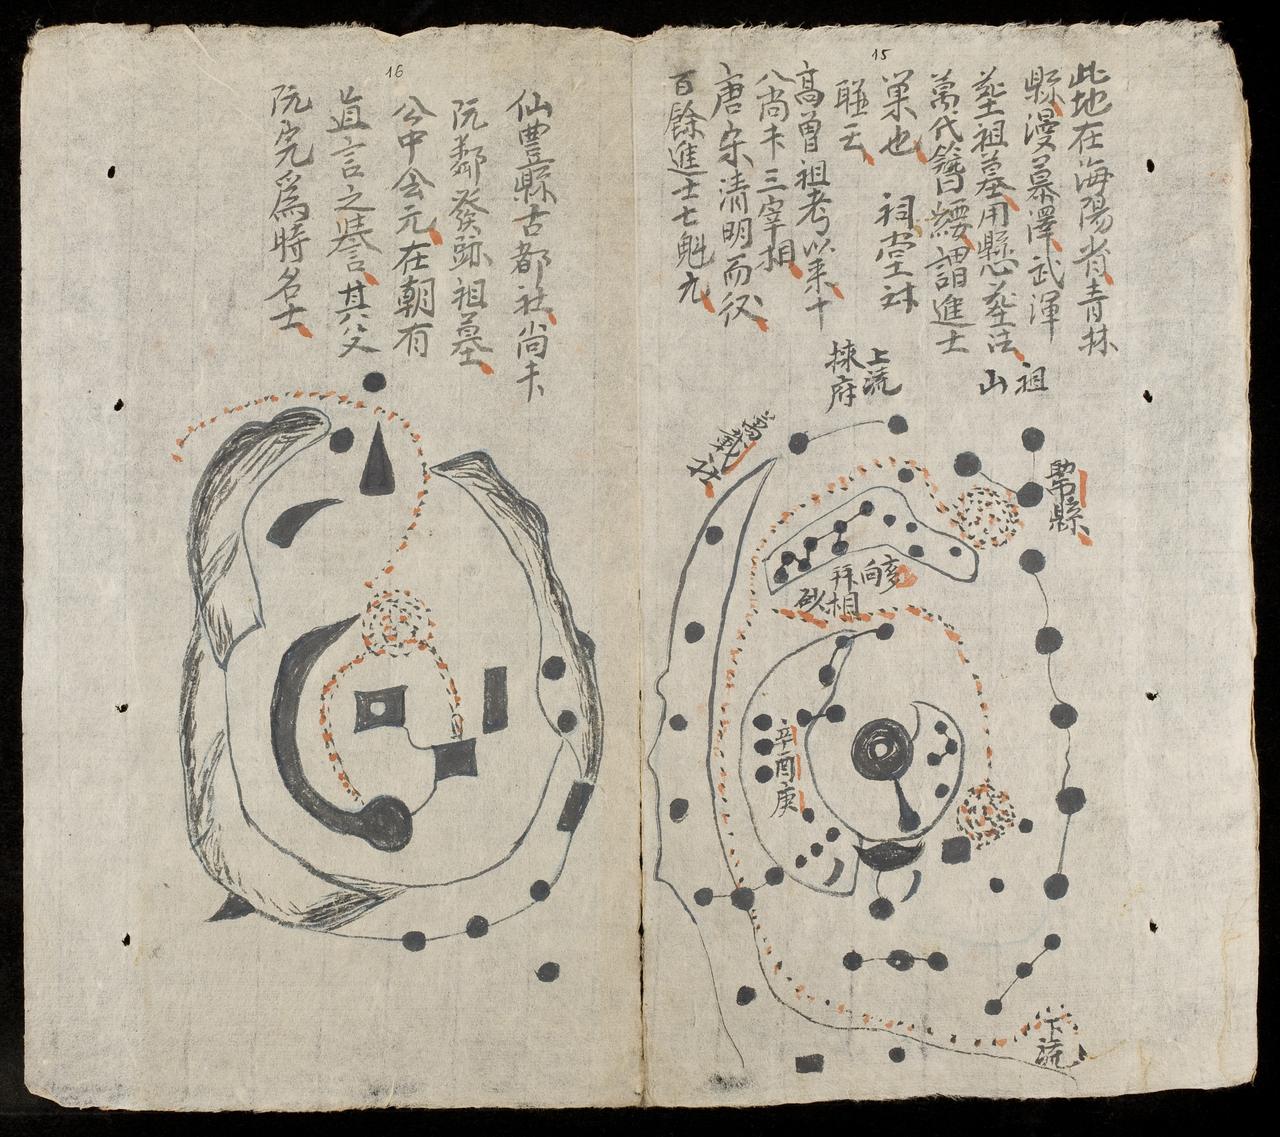 15
此地在海陽省青林
縣漫慕澤武渾
塟祖墓用懸塟法
萬代簪纓謂進士
巢也 祠堂对
聯云
高曾祖考以来十
八尚未三宰相
唐宋清明而後
百餘進士七魁元
祖
山
上流
揀府
萬載社
縣
向
拜相
砂
辛酉庚
下流
16
仙豊縣古都社尚未
阮鄰發跡祖墓
公中会元在朝有
直言之誉其父
阮完爲時名士